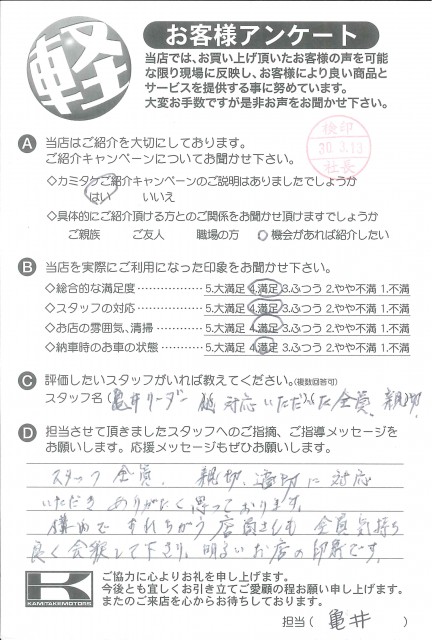 軽
お客様アンケート
当店では、お買い上げ頂いたお客様の声を可能
な限り現場に反映し、お客様により良い商品と
サービスを提供する事に努めています。
大変お手数ですが是非お声をお聞かせ下さい。
検印
30.3.13
社長
A 当店はご紹介を大切にしております。
ご紹介キャンペーンについてお聞かせ下さい。
◇カミタケご紹介キャンペーンのご説明はありましたでしょうか
はい いいえ
◇具体的にご紹介頂ける方とのご関係をお聞かせ頂けますでしょうか
ご親族 ご友人 職場の方 機会があれば紹介したい
B 当店を実際にご利用になった印象をお聞かせ下さい。
◇総合的な満足度 5.大満足 4.満足 3.ふつう 2.やや不満 1.不満
◇スタッフの対応 5.大満足 4.満足 3.ふつう 2.やや不満 1.不満
◇お店の雰囲気、清掃 5.大満足 4.満足 3.ふつう 2.やや不満 1.不満
◇納車時のお車の状態 5.大満足 4.満足 3.ふつう 2.やや不満 1.不満
C 評価したいスタッフがいれば教えてください。(複数回答可)
スタッフ名( 亀井リーダー 他 対応いただいた全員、親切
D 担当させて頂きましたスタッフへのご指摘、ご指導メッセージを
お願いします。応援メッセージもぜひお願いします。
スタッフ全員、親切、適切に対応
いただき ありがたく思っております。
構内で すれちがう店員さんも 全員気持ち
良く会釈して下さり、明るいお店の印象です。
K
KAMITAKEMOTORS
ご協力に心よりお礼を申し上げます。
今後とも宜しくお引き立てご愛顧の程お願い申し上げます。
またのご来店を心からお待ちしております。
担当( 亀井 )